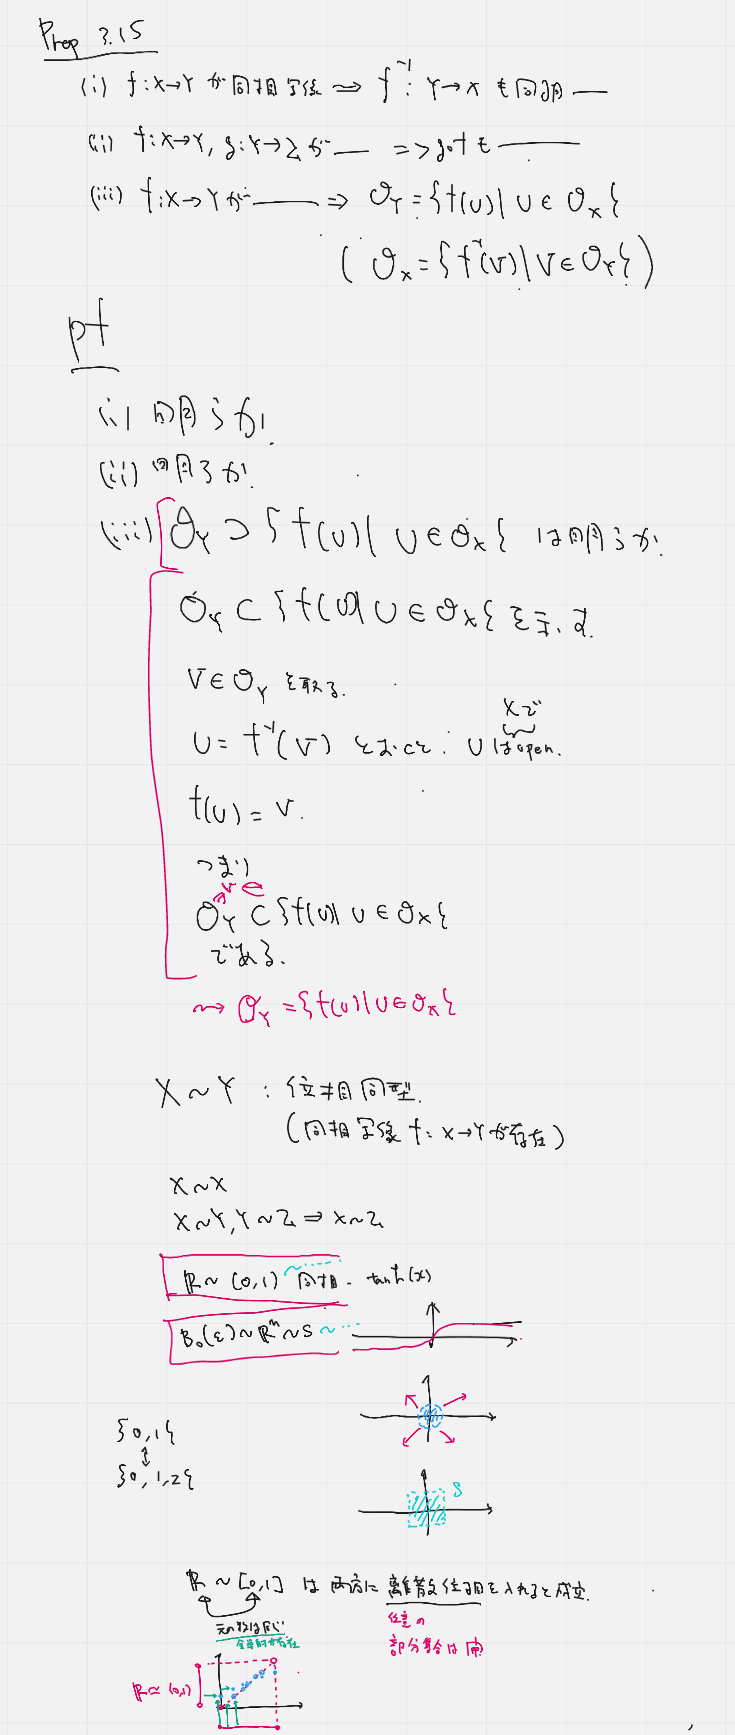 Prop 3.15
(i) f:X→Y が同相写像 ⇒ f⁻¹: Y→X も同相 —
(ii) f:X→Y, g:Y→Z が — => g∘f も —
(iii) f:X→Y が — ⇒ O_Y = {f(U) | U ∈ O_X}
( O_X = {f⁻¹(V) | V ∈ O_Y} )
pf
(i) 明らか.
(ii) 明らか.
(iii) O_Y ⊃ {f(U) | U ∈ O_X} は明らか.
O_Y ⊂ {f(U) | U ∈ O_X} を示す.
V ∈ O_Y を取る.
Xで
U = f⁻¹(V) とおくと: U は open.
f(U) = V.
つまり
V ∈
O_Y ⊂ {f(U) | U ∈ O_X}
である.
⇝ O_Y = {f(U) | U ∈ O_X}
X ~ Y : 位相同型.
(同相写像 f: X→Y が存在)
X ~ X
X ~ Y, Y ~ Z ⇒ X ~ Z
ℝ ~ (0,1) ~ 同相. tanh(x)
B₀(ε) ~ ℝⁿ ~ S ~
{0,1}
↕
{0,1,2}
S
ℝ ~ [0,1] は両方に離散位相を入れると成立.
元の数は同じ
全単射が存在
任意の
部分集合は開
ℝ ≃ (0,1)